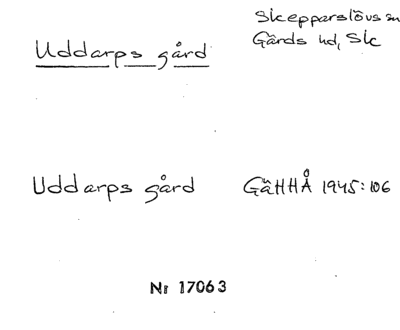 Uddarps gård
Skepparslövs sn
Gärds hd, Sk
Uddarps gård GäHHÅ 1945:106
Nr 17063